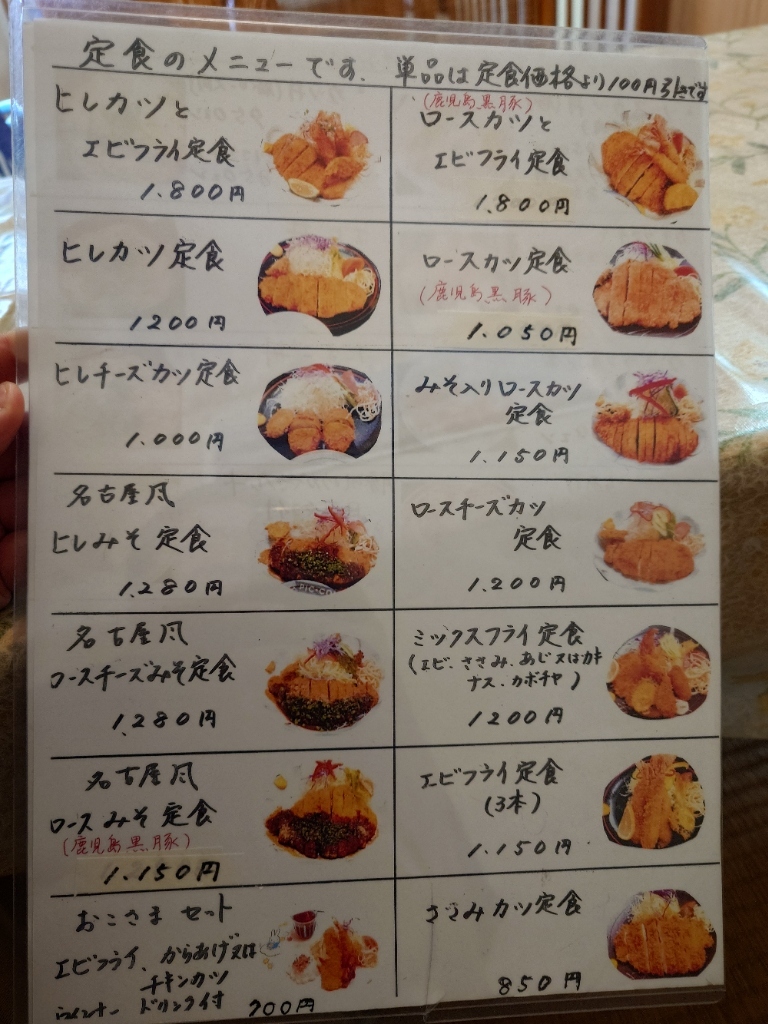 定食のメニューです. 単品は定食価格より100円引きです
ヒレカツと
エビフライ定食
1.800円
(鹿児島黒豚)
ロースカツと
エビフライ定食
1.800円
ヒレカツ定食
1200円
ロースカツ定食
(鹿児島黒豚)
1.050円
ヒレチーズカツ定食
1.000円
みそ入りロースカツ
定食
1.150円
名古屋風
ヒレみそ定食
1.280円
ロースチーズカツ
定食
1.200円
名古屋風
ロースチーズみそ定食
1.280円
ミックスフライ定食
(エビ、ささみ、あじ又はカキ
ナス、カボチャ)
1200円
名古屋風
ロースみそ定食
(鹿児島黒豚)
1.150円
エビフライ定食
(3本)
1.150円
おこさまセット
エビフライ、からあげ又は
チキンカツ
ウインナー ドリンク付
700円
ささみカツ定食
850円